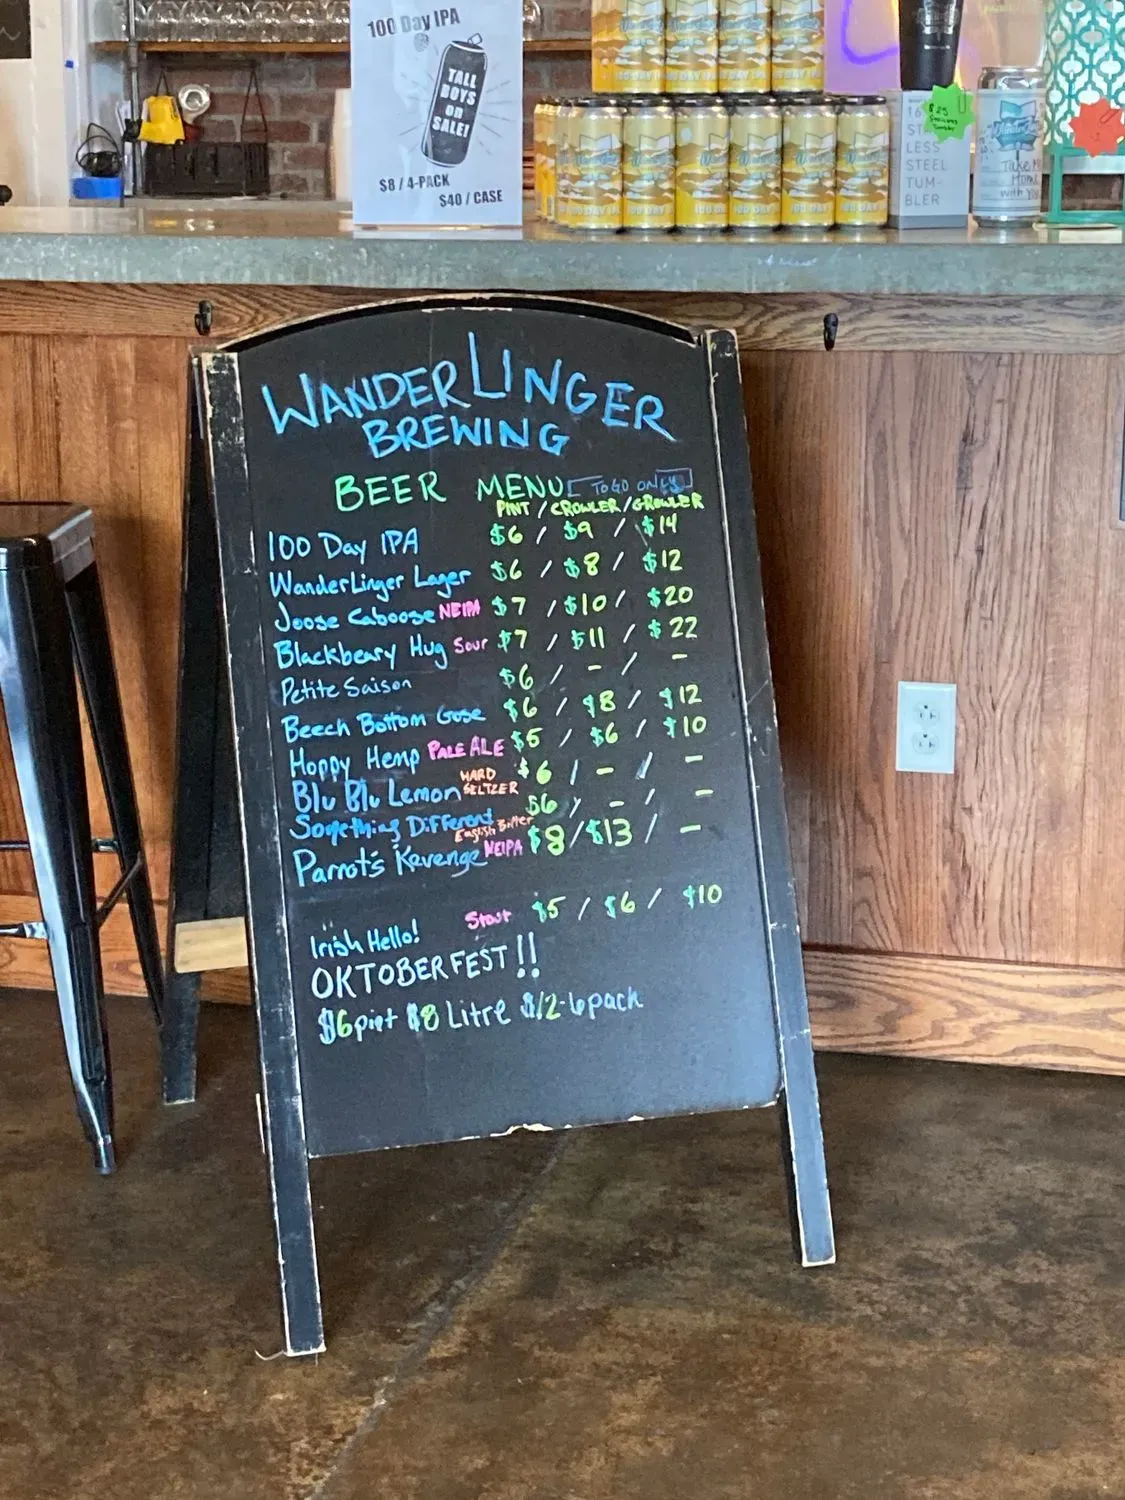 100 Day IPA
TALL
BOYS
on
SALE!
$8 / 4-PACK
$40 / CASE
STAIN
LESS
STEEL
TUM-
BLER
Take Me
Home
with you
WANDERLINGER
BREWING
BEER MENU [TO GO ONLY]
PINT / CROWLER / GROWLER
100 Day IPA $6 / $9 / $14
WanderLinger Lager $6 / $8 / $12
Joose Caboose NEIPA $7 / $10 / $20
Blackbeary Hug Sour $7 / $11 / $22
Petite Saison $6 / - / -
Beech Bottom Gose $6 / $8 / $12
Hoppy Hemp PALE ALE $5 / $6 / $10
Blu Blu Lemon HARD SELTZER $6 / - / -
Something Different English Bitter $6 / - / -
Parrot's Revenge NEIPA $8 / $13 / -
Irish Hello! Stout $5 / $6 / $10
OKTOBERFEST!!
$6 pint $8 Litre $12-6pack